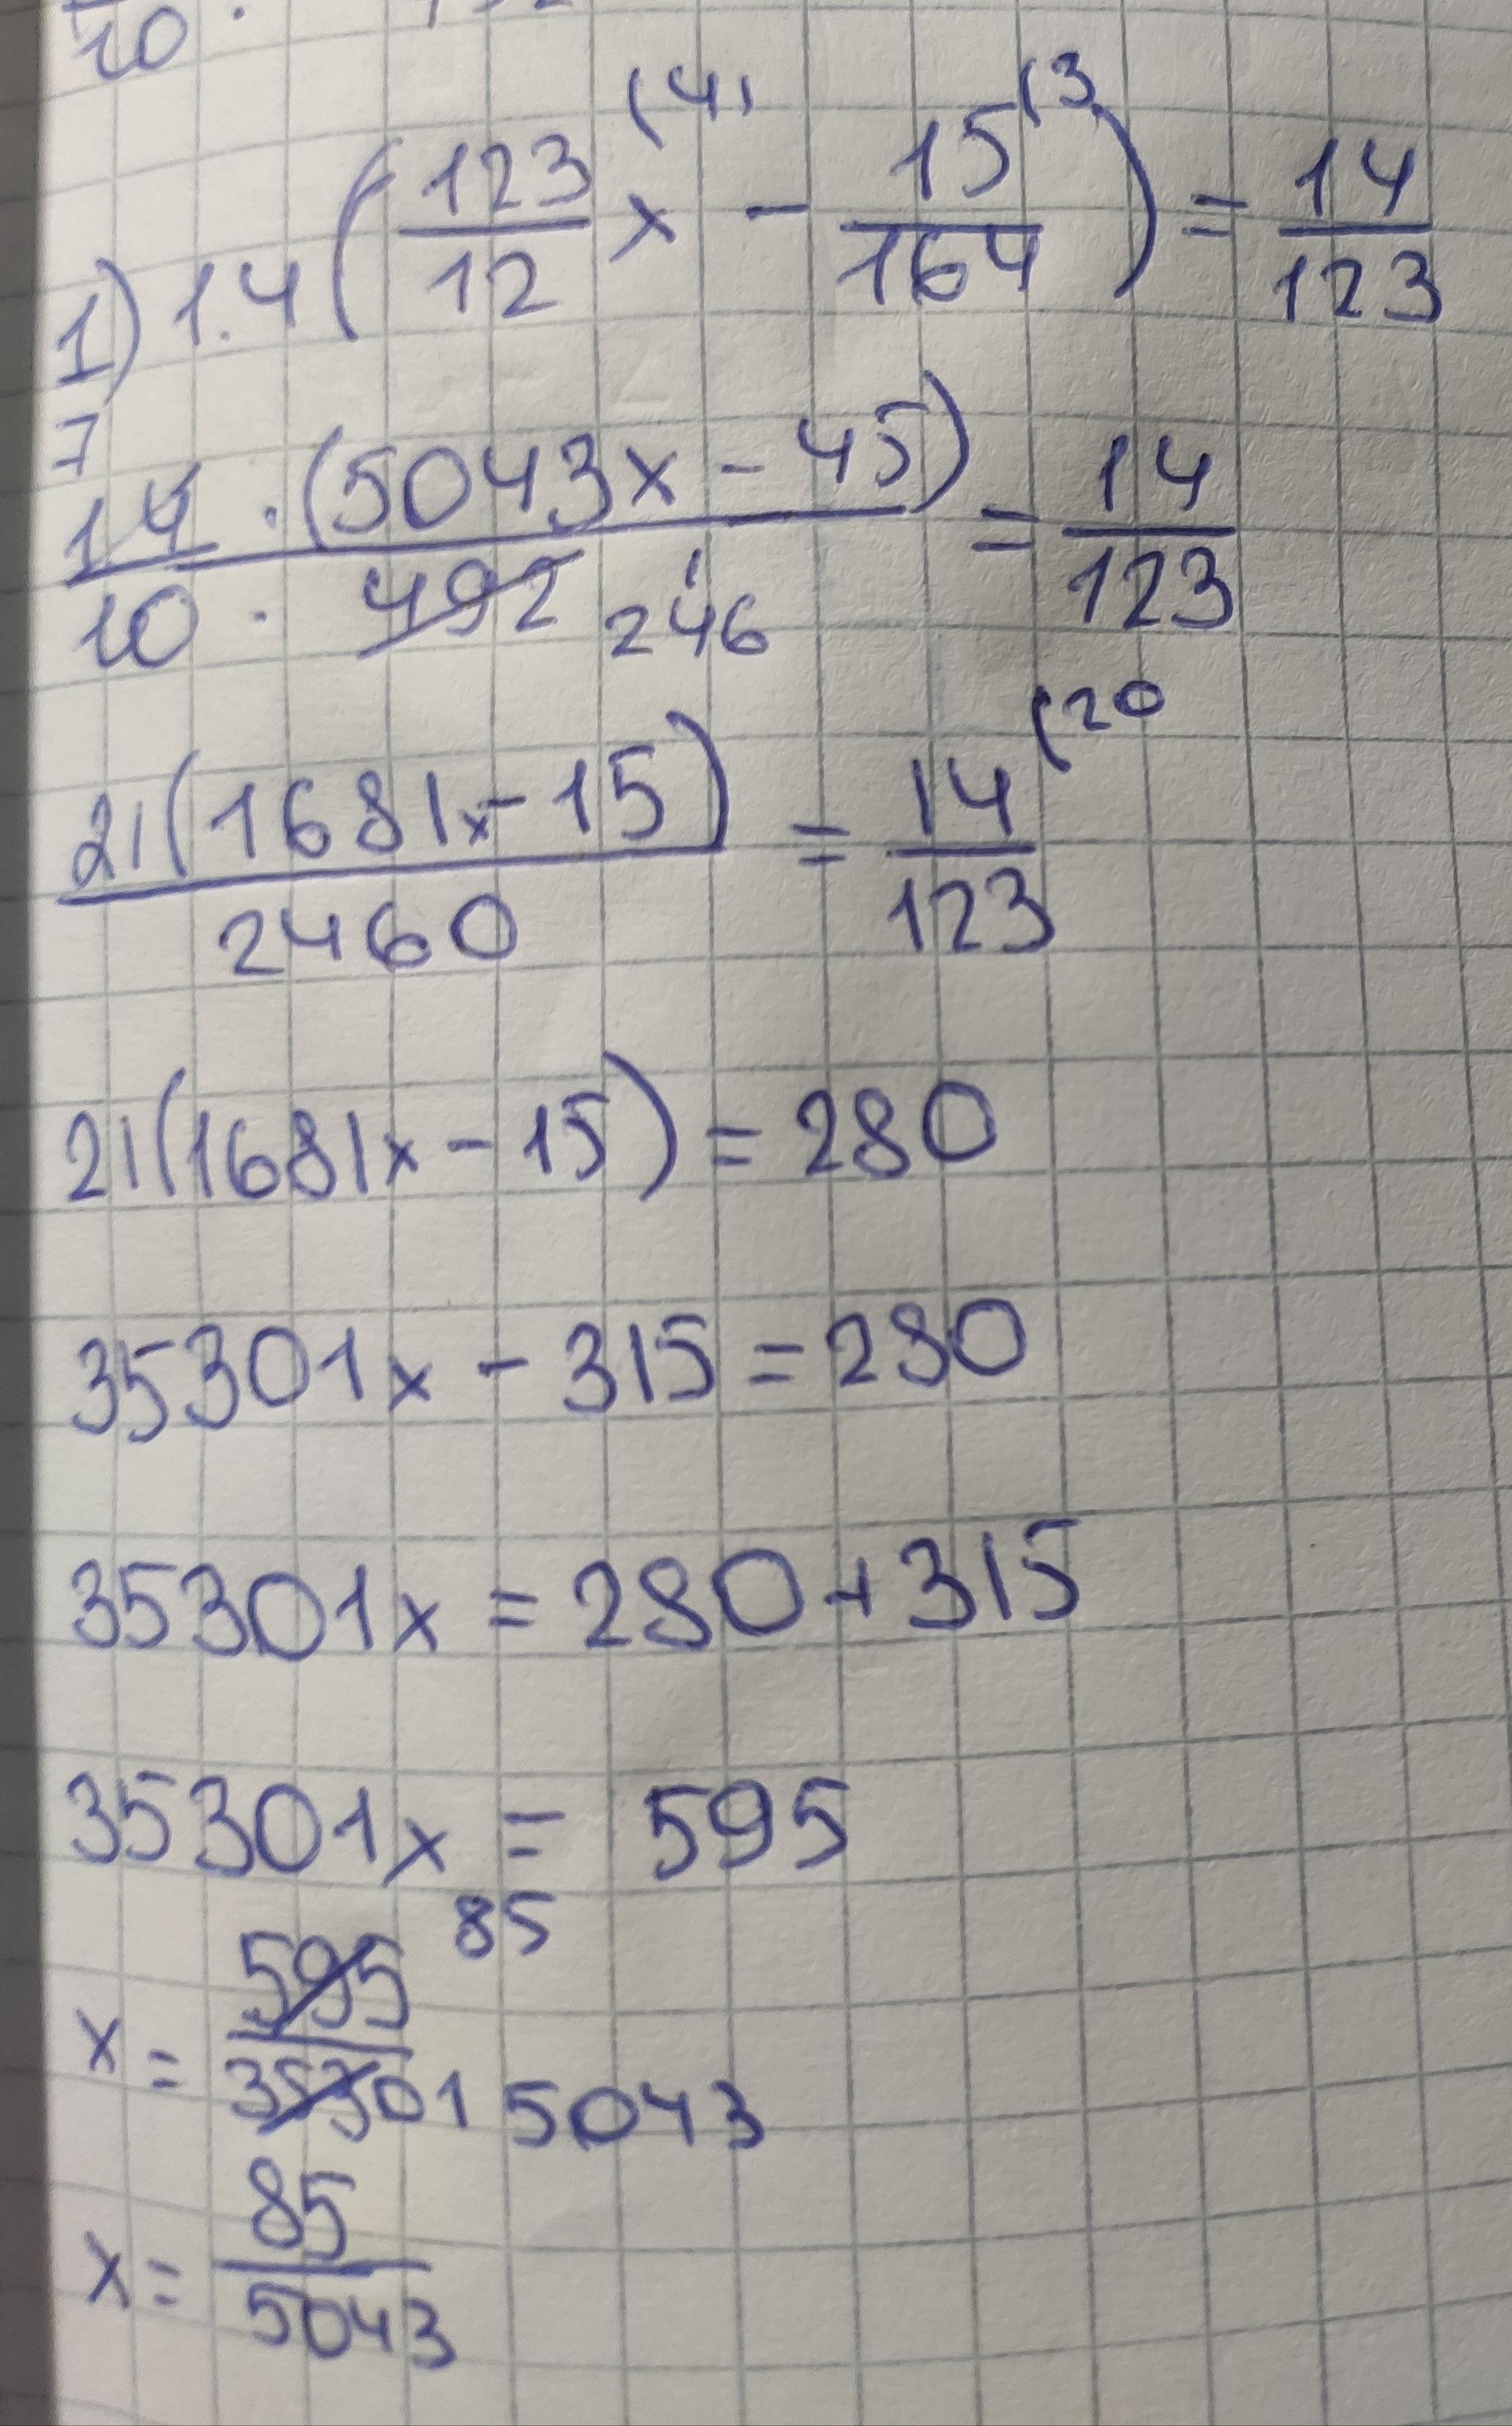 10 ·
(41 (3
1) 1.4 ( 123/12 x - 15/164 ) = 14/123
7
14 · (5043x - 45) / 10 · 492 246 = 14/123
(20
21(1681x - 15) / 2460 = 14/123
21(1681x - 15) = 280
35301x - 315 = 280
35301x = 280 + 315
35301x = 595
85
x = 595/35301 5043
x = 85/5043